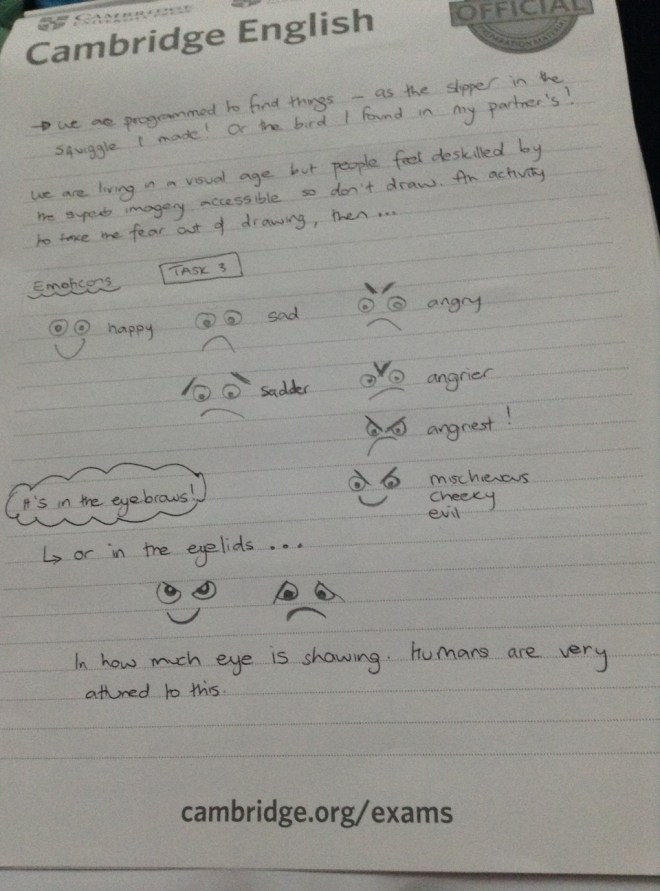 CAMBRIDGE
OFFICIAL
PREPARATION MATERIAL
Cambridge English
→ we are programmed to find things – as the slipper in the
squiggle I made! Or the bird I found in my partner's!
we are living in a visual age but people feel deskilled by
the superb imagery accessible so don't draw. An activity
to take the fear out of drawing, then ...
Emoticons TASK 3
happy sad angry
sadder angrier
angriest!
mischievous
It's in the eyebrows! cheeky
evil
↳ or in the eyelids ...
In how much eye is showing. Humans are very
attuned to this.
cambridge.org/exams